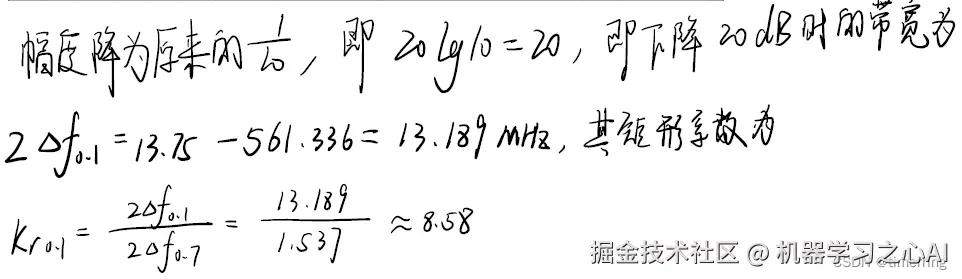 幅度降为原来的 1/10, 即 20lg10=20, 即下降 20dB 时的带宽为
2Δf0.1 = 13.75 - 561.336 = 13.189 MHz, 其矩形系数为
Kr0.1 = 2Δf0.1 / 2Δf0.7 = 13.189 / 1.537 ≈ 8.58
掘金技术社区 @ 机器学习之心AI